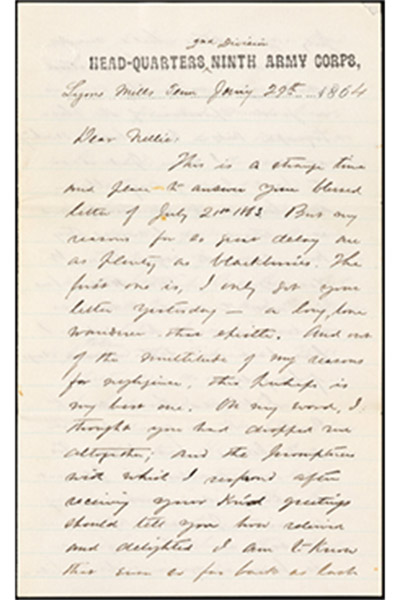 2nd Division
HEAD-QUARTERS, NINTH ARMY CORPS,
Lyons Mills Tenn Jany 29th 1864
Dear Nellie:
This is a strange time
and place to answer your blessed
letter of July 21st 1863 But my
reasons for so great delay are
as plenty as blackberries. The
first one is, I only got your
letter yesterday — a long, lone
wanderer that epistle. And out
of the multitude of my reasons
for negligence, this perhaps is
my best one. On my word, I
thought you had dropped me
altogether; and the promptness
with which I respond after
receiving your kind greetings
should tell you how relieved
and delighted I am to know
that even so far back as last